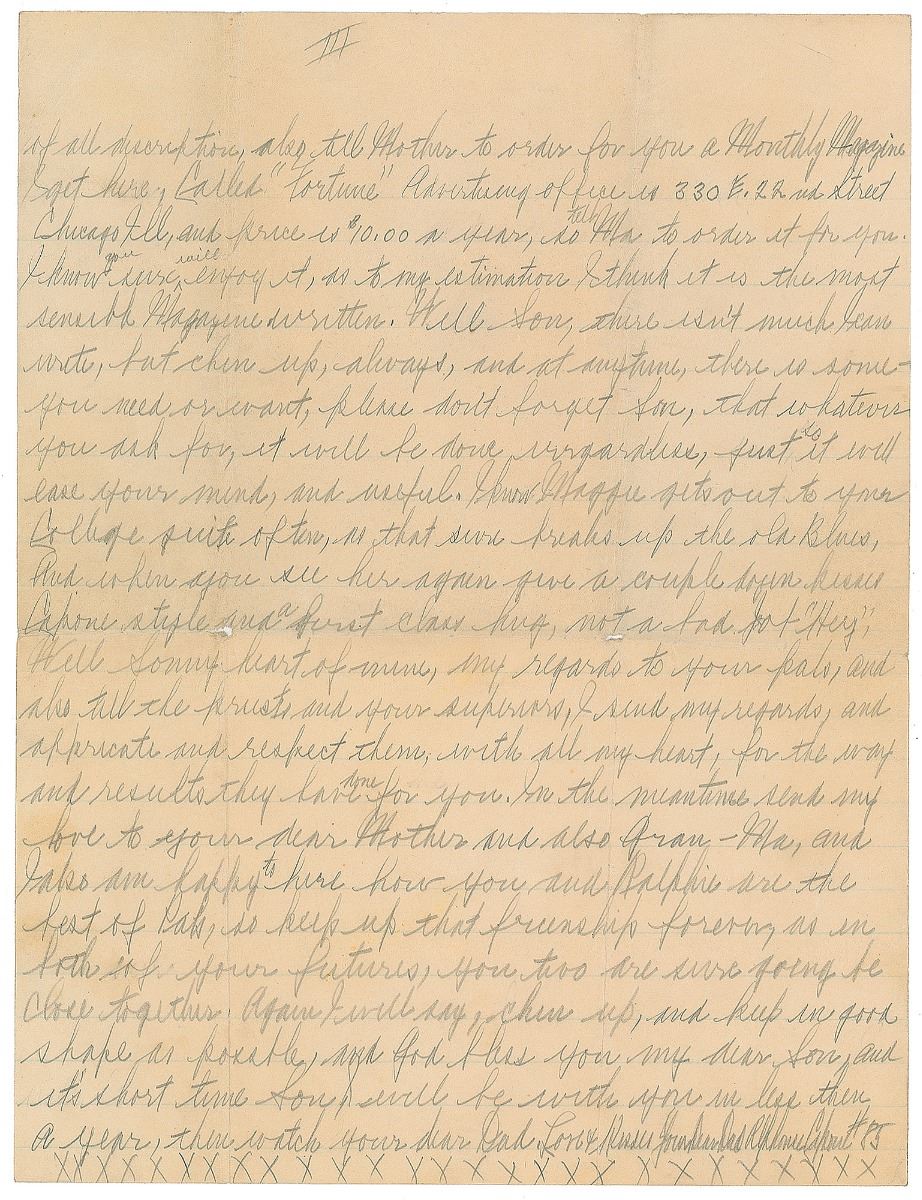 III
of all discription, also, tell Mother to order for you a Monthly Magazine
I get here, Called "Fortune" Advertising office is 330 E. 22nd Street
Chicago Ill, and price is $10.00 a year, so tell Ma to order it for you.
I know you sure will, enjoy it, as to my estimation I think it is the most
sensible Magazine written. Well Son, there isn't much I can
write, but chin up, always, and at anytime, there is some-
you need or want, please don't forget Son, that whatever
you ask for, it will be done irregardless, just so it will
ease your mind, and useful. I know Maggie gets out to your
College quite often, as that sure breaks up the old Blues,
And when you see her again give a couple dozen kisses
Capone style and a first class hug, not a bad job "Hey",
Well Sonny heart of mine, my regards to your pals, and
also tell the priests and your superiors, I send my regards, and
appricate and respect them, with all my heart, for the way
and results they have done for you. In the meantime send my
love to your dear Mother and also Gran-Ma, and
I also am happy to here how you and Ralphie are the
best of Pals, so keep up that frienship forever, as in
both of your futures, you two are sure going be
close together. Again I will say, chin up, and keep in good
shape as possible, and God bless you my dear Son, and
it's short time Son, I will be with you in less then
a year, then watch your dear Dad. Love & Kisses Your Dear Dad Alphonse Capone #85
X X X X X X X X X X X X X X X X X X X X X X X X X